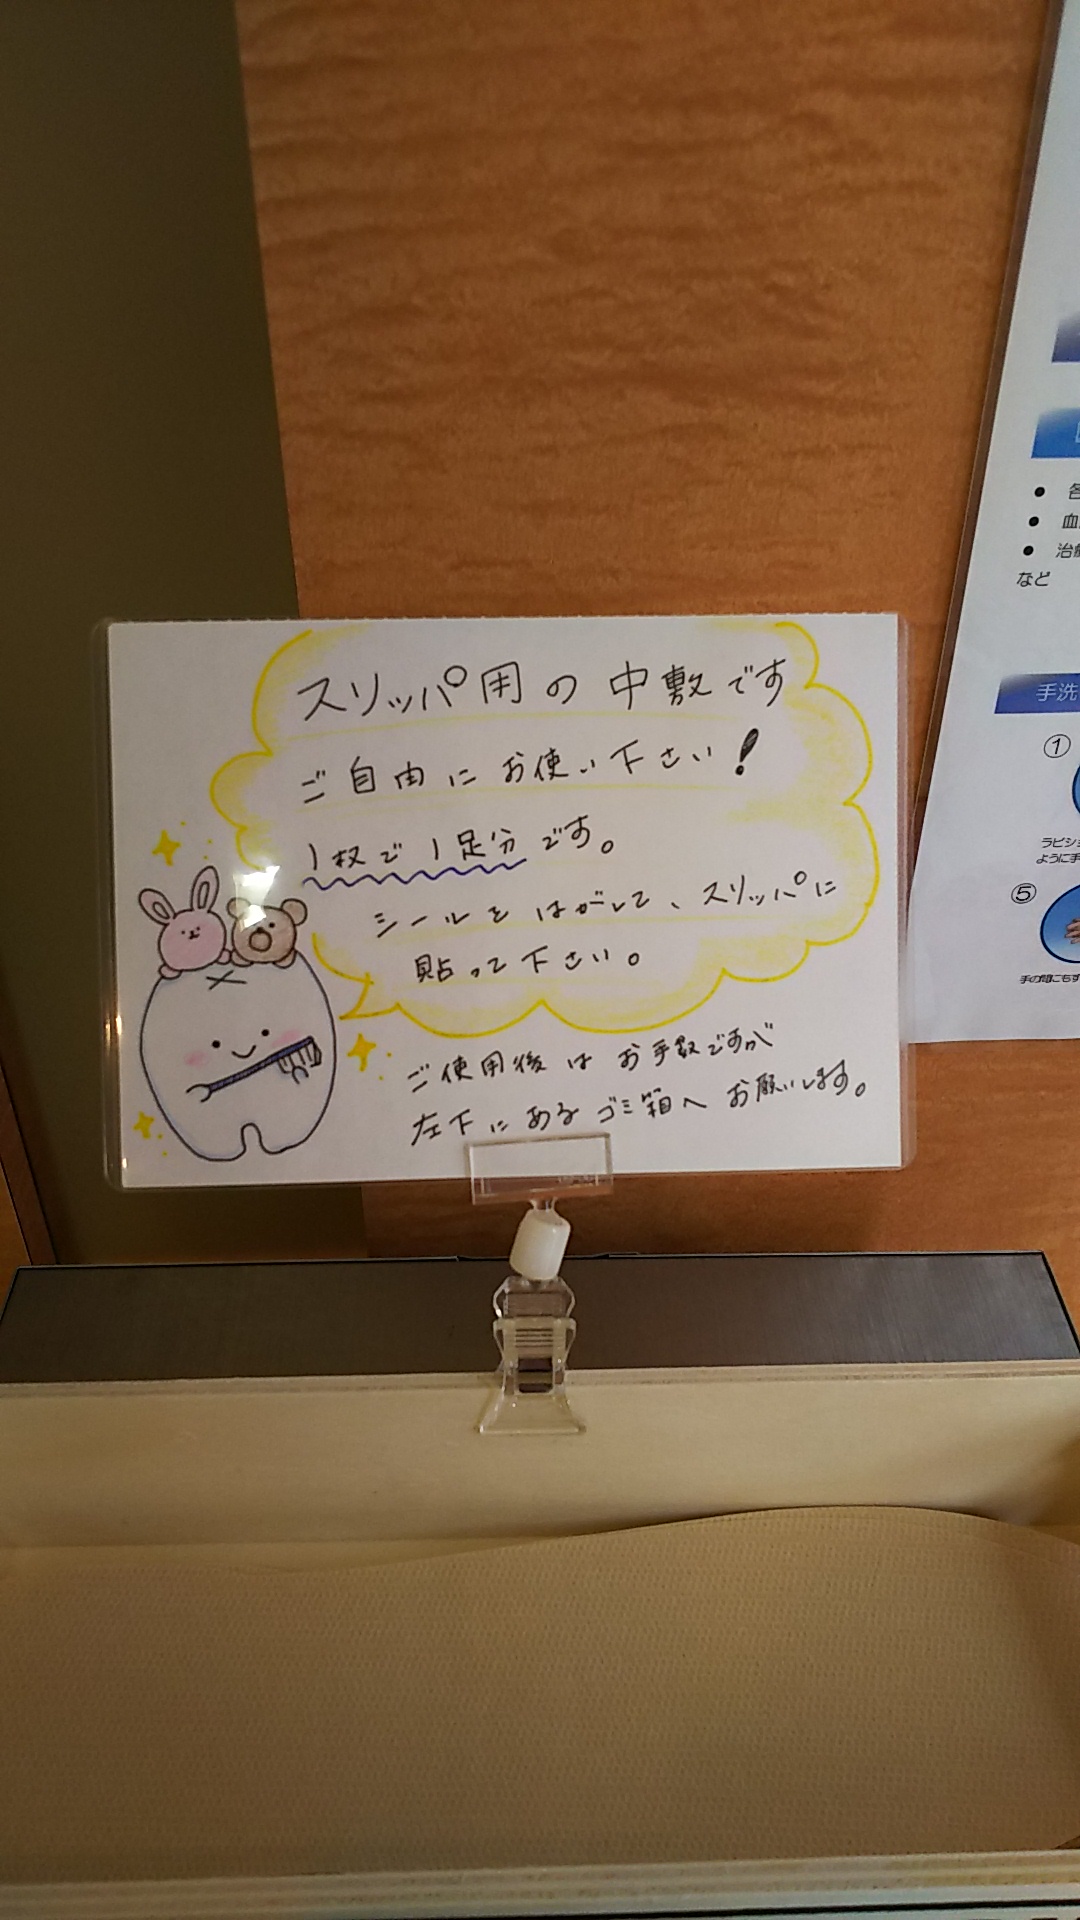 スリッパ用の中敷です
ご自由にお使い下さい!
1枚で1足分です。
シールをはがして、スリッパに
貼って下さい。
ご使用後はお手数ですが
左下にあるゴミ箱へお願いします。
各
血
治療
など
手洗
①
ように手
⑤
手の間にもす